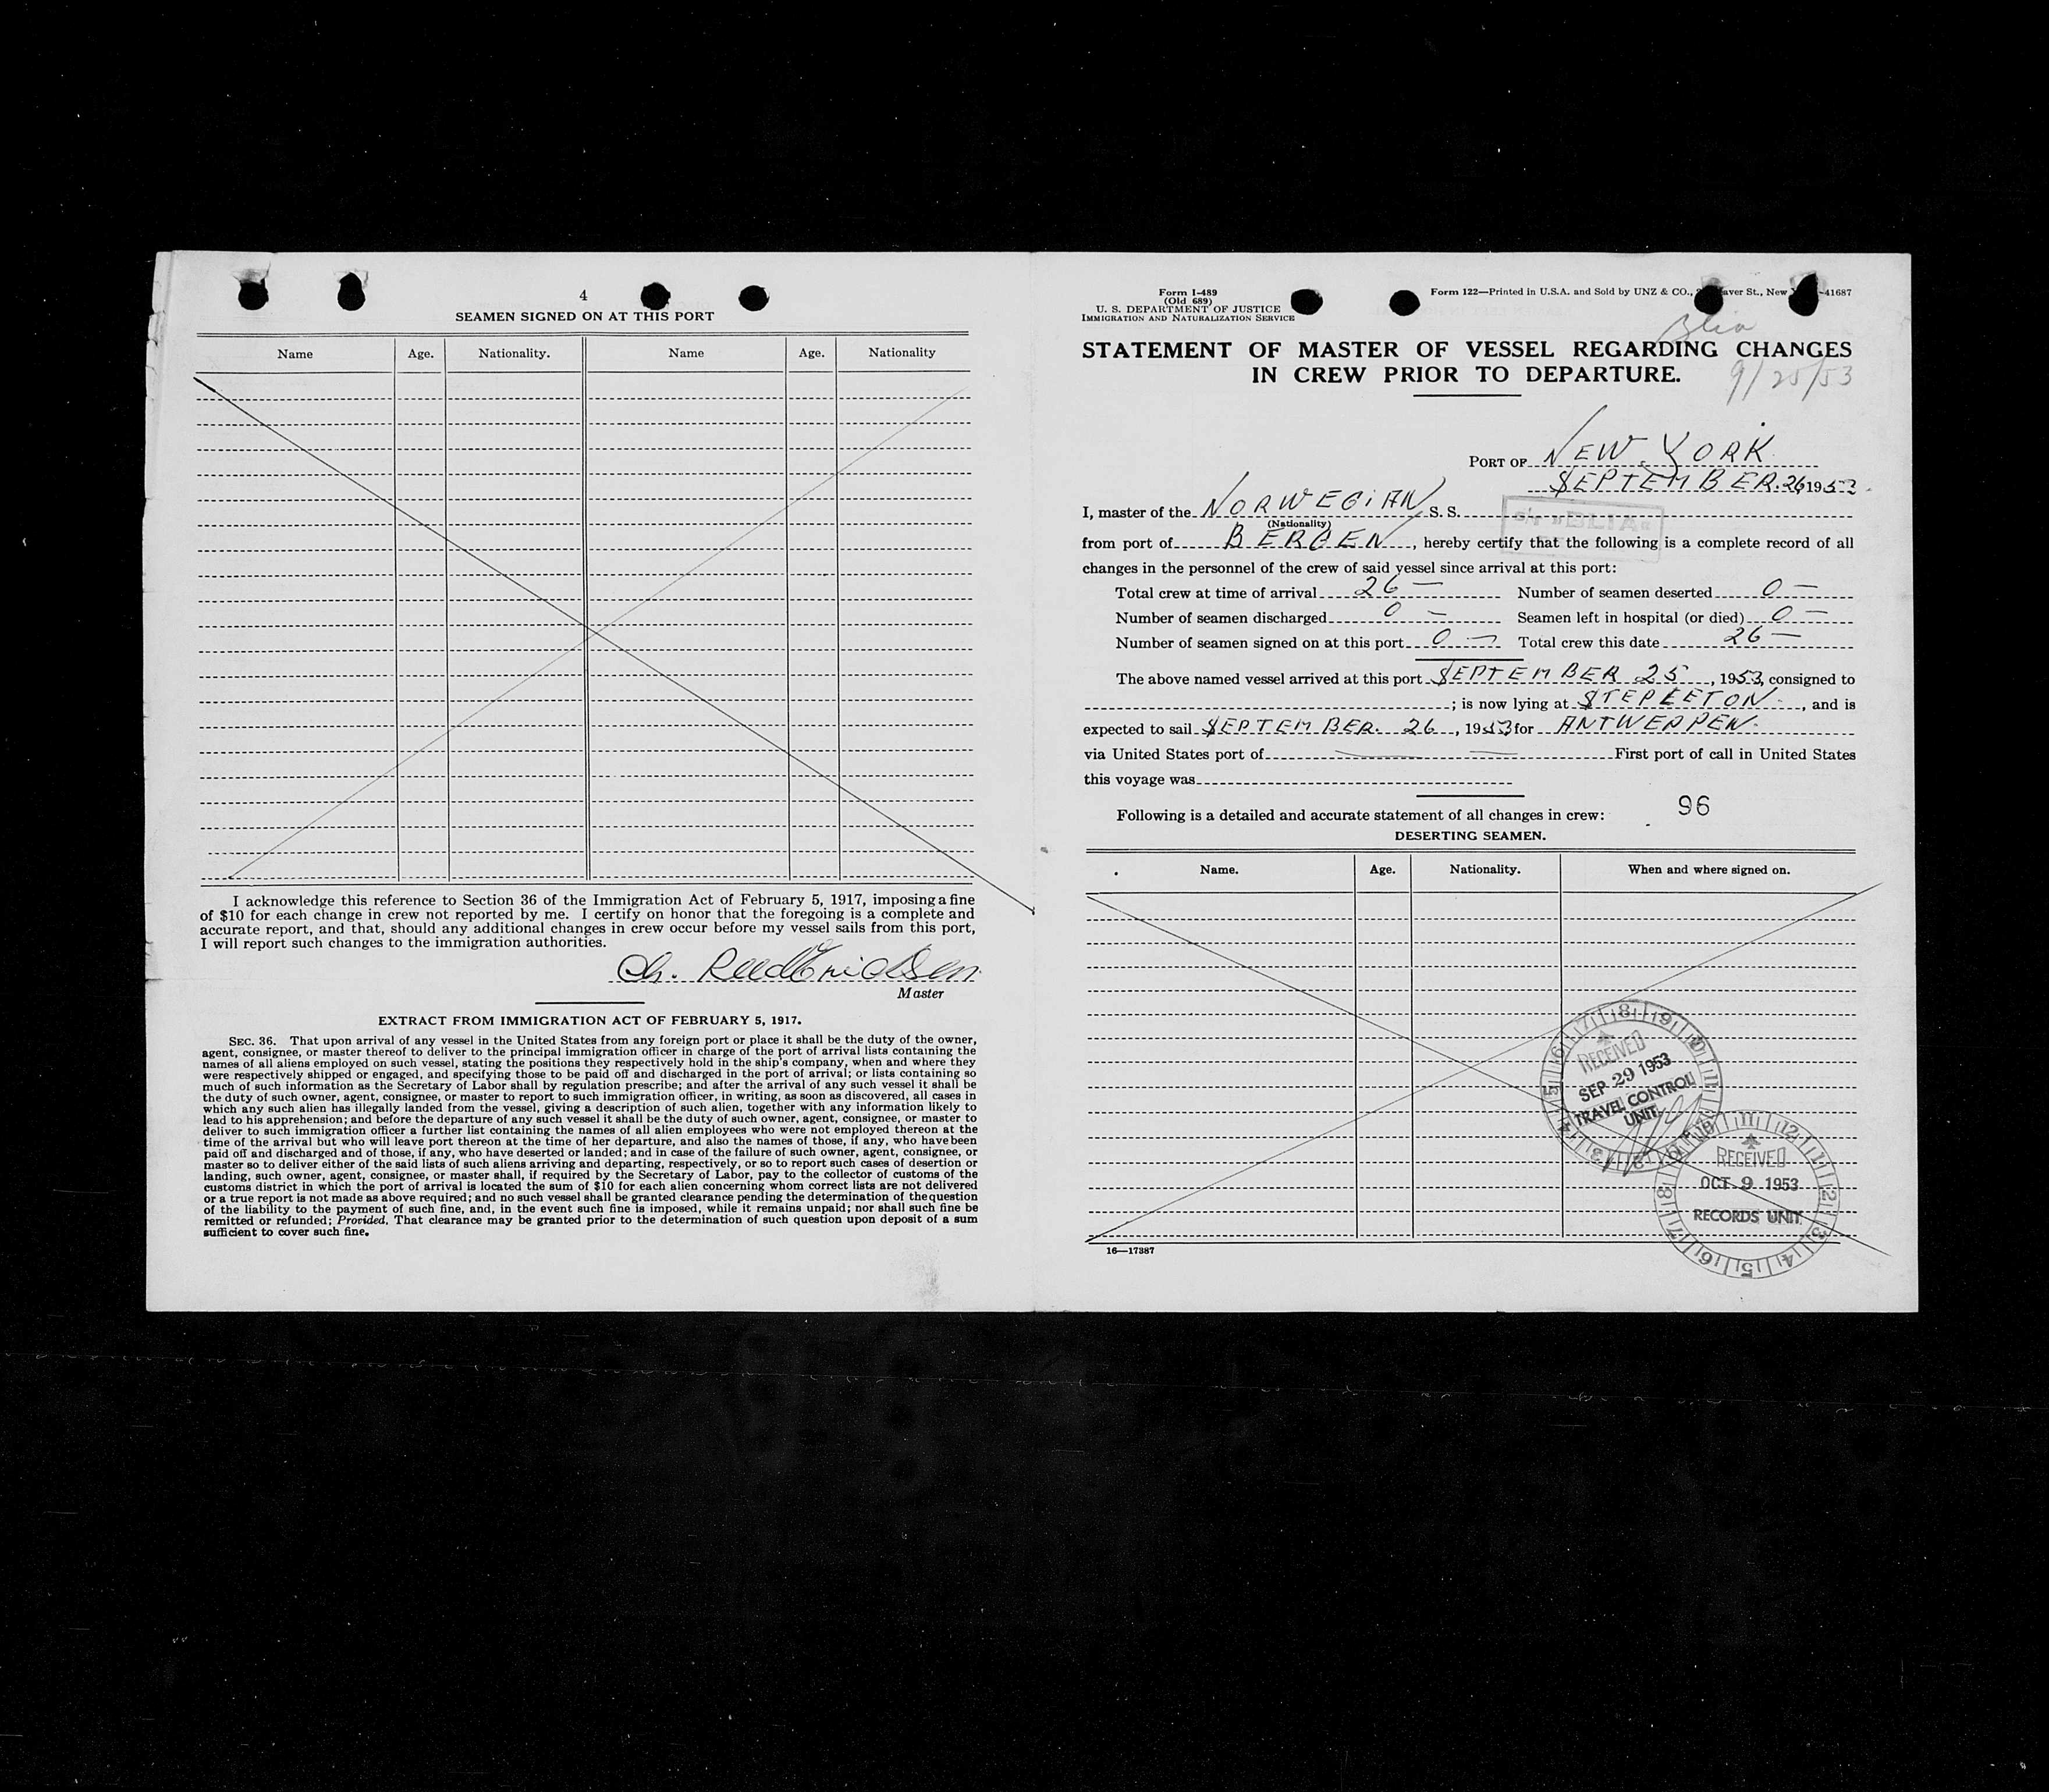 4
SEAMEN SIGNED ON AT THIS PORT
Name Age. Nationality. Name Age. Nationality
I acknowledge this reference to Section 36 of the Immigration Act of February 5, 1917, imposing a fine
of $10 for each change in crew not reported by me. I certify on honor that the foregoing is a complete and
accurate report, and that, should any additional changes in crew occur before my vessel sails from this port,
I will report such changes to the immigration authorities.
Ch.
Master
EXTRACT FROM IMMIGRATION ACT OF FEBRUARY 5, 1917.
SEC. 36. That upon arrival of any vessel in the United States from any foreign port or place it shall be the duty of the owner,
agent, consignee, or master thereof to deliver to the principal immigration officer in charge of the port of arrival lists containing the
names of all aliens employed on such vessel, stating the positions they respectively hold in the ship's company, when and where they
were respectively shipped or engaged, and specifying those to be paid off and discharged in the port of arrival; or lists containing so
much of such information as the Secretary of Labor shall by regulation prescribe; and after the arrival of any such vessel it shall be
the duty of such owner, agent, consignee, or master to report to such immigration officer, in writing, as soon as discovered, all cases in
which any such alien has illegally landed from the vessel, giving a description of such alien, together with any information likely to
lead to his apprehension; and before the departure of any such vessel it shall be the duty of such owner, agent, consignee, or master to
deliver to such immigration officer a further list containing the names of all alien employees who were not employed thereon at the
time of the arrival but who will leave port thereon at the time of her departure, and also the names of those, if any, who have been
paid off and discharged and of those, if any, who have deserted or landed; and in case of the failure of such owner, agent, consignee, or
master so to deliver either of the said lists of such aliens arriving and departing, respectively, or so to report such cases of desertion or
landing, such owner, agent, consignee, or master shall, if required by the Secretary of Labor, pay to the collector of customs of the
customs district in which the port of arrival is located the sum of $10 for each alien concerning whom correct lists are not delivered
or a true report is not made as above required; and no such vessel shall be granted clearance pending the determination of the question
of the liability to the payment of such fine, and, in the event such fine is imposed, while it remains unpaid; nor shall such fine be
remitted or refunded; Provided, That clearance may be granted prior to the determination of such question upon deposit of a sum
sufficient to cover such fine.
Form I-489
(Old 689)
U. S. DEPARTMENT OF JUSTICE
IMMIGRATION AND NATURALIZATION SERVICE
Form 122—Printed in U.S.A. and Sold by UNZ & CO., aver St., New -41687
Blia
STATEMENT OF MASTER OF VESSEL REGARDING CHANGES
IN CREW PRIOR TO DEPARTURE.
9/25/53
PORT OF NEW YORK
SEPTEMBER. 26 1953.
I, master of the NORWEGIAN S. S. "BLIA"
(Nationality)
from port of BERGEN, hereby certify that the following is a complete record of all
changes in the personnel of the crew of said vessel since arrival at this port:
Total crew at time of arrival 26 — Number of seamen deserted 0 —
Number of seamen discharged 0 — Seamen left in hospital (or died) 0 —
Number of seamen signed on at this port 0 — Total crew this date 26 —
The above named vessel arrived at this port SEPTEMBER 25, 1953, consigned to
; is now lying at STEPLETON, and is
expected to sail SEPTEMBER. 26, 1953 for ANTWERPEN.
via United States port of First port of call in United States
this voyage was
Following is a detailed and accurate statement of all changes in crew: 96
DESERTING SEAMEN.
Name. Age. Nationality. When and where signed on.
RECEIVED
SEP 29 1953
TRAVEL CONTROL
UNIT
RECEIVED
OCT 9 1953
RECORDS UNIT
16—17387